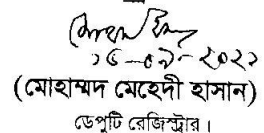 ১৬-০৯-২০২১
(মোহাম্মদ মেহেদী হাসান)
ডেপুটি রেজিস্ট্রার।